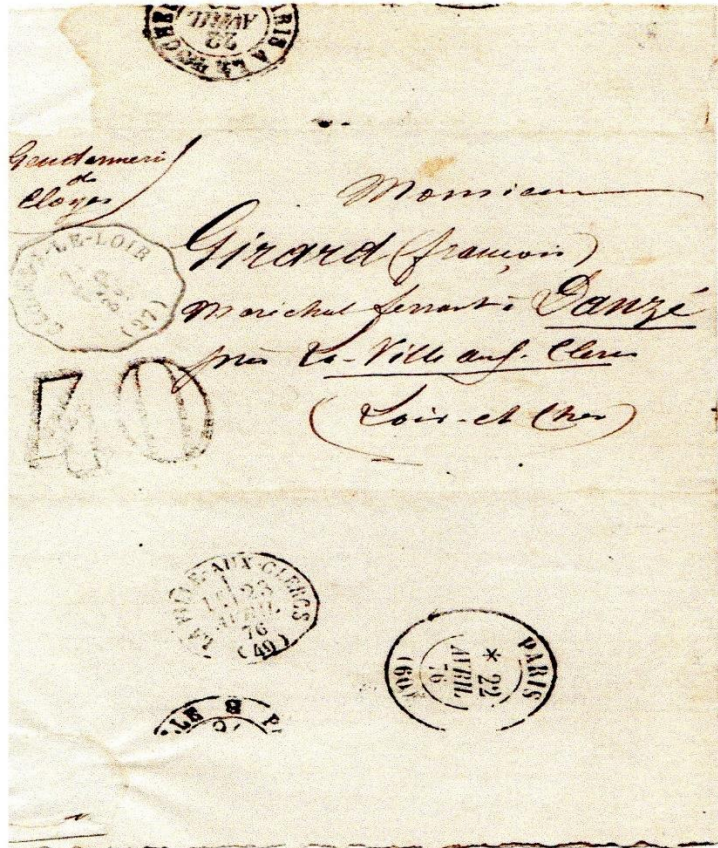 22
AVRIL
Gendarmeri
de
Cloyes
Monsieur
Girard (françois)
Maréchal ferrant à Danzé
près La-Ville aux-Clercs
(Loir-et Cher)
LE-LOIR
40
LA VILLE-AUX-CLERCS
23
AVRIL
76
(40)
PARIS
*
22
AVRIL
76
(60)